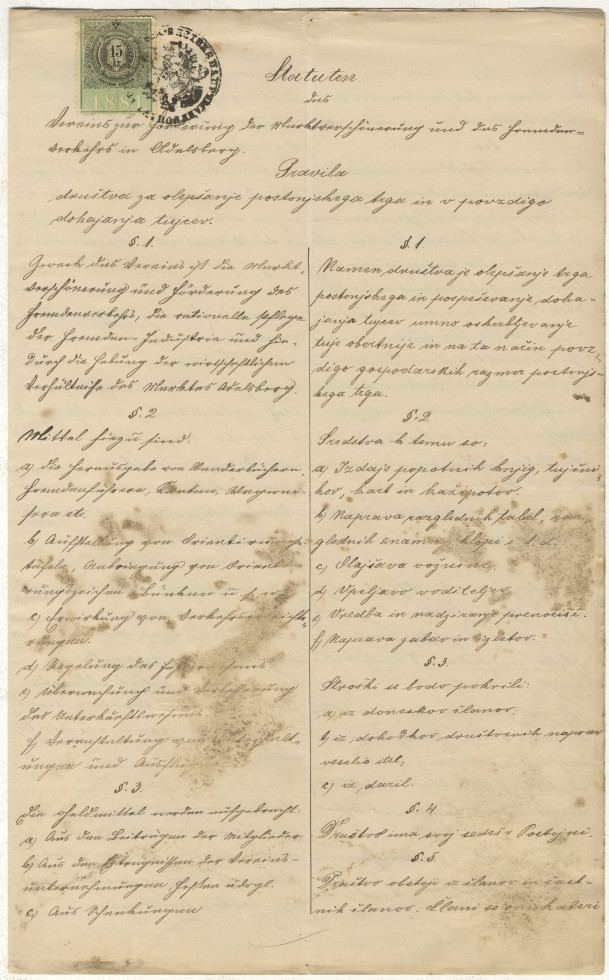 15
188
Statuten
des
Vereins zur Förderung der Marktverschönerung und des Fremden=
verkehrs in Adelsberg.
Pravila
društva za olepšanje postonjskega trga in v povzdigo
dohajanja tujcev.
§. 1.
Zweck des Vereins ist die Markt-
verschönerung und Förderung des
Fremdenverkehrs, die rationelle Pflege
der Fremden-Industrie und hie-
durch die Hebung der wirtschaftlichen
Verhältnisse des Marktes Adelsberg.
§. 2
Mittel hiezu sind:
a) Die Herausgabe von Wanderbüchern,
Fremdenführern, Karten, Wegwei-
sern etc.
b) Aufstellung von Orientirungs-
tafeln, Anbringung von Orient-
rungszeichen, Bänken u. s. w.
c) Erwirkung von Verkehrserleichte-
rungen.
d) Regelung des
e) Überwachung und Verbesserung
des Unterkunftswesens.
f) Veranstaltung von
ungen und
§. 3.
Die Geldmittel werden aufgebracht
a) Aus den Beiträgen der Mitglieder
b) Aus den Erträgnissen der Vereins-
unternehmungen, Festen u. drgl.
c) Aus Schenkungen
§. 1.
Namen društva je olepšanje trga
postonjskega in pospeševanje doha-
janja tujcev umno oskerbljevanje
tuje obertnije in na ta način povz-
digo gospodarskih razmer postonjs-
kega trga.
§. 2
Sredstva k temu so:
a) Izdaje popotnih knjig, tujčni-
kov, kart in kažipotov.
b) Naprava razglednih tabel, raz
glednih znamenj, klopi i. t. d.
c) Olajšava voznine.
d) Vpeljavo voditeljev
e) Vredba in nadziranje prenočišč.
f) Naprava zabav in izletov.
§. 3.
Stroški se bodo pokrili:
a) iz doneskov članov;
b) iz dohodkov društvenih naprav
veselic itd,
c) iz daril.
§. 4.
Društvo ima svoj sedež v Postojni.
§. 5.
Društvo obstoji iz članov in čast-
nih članov. Člani so oni kateri